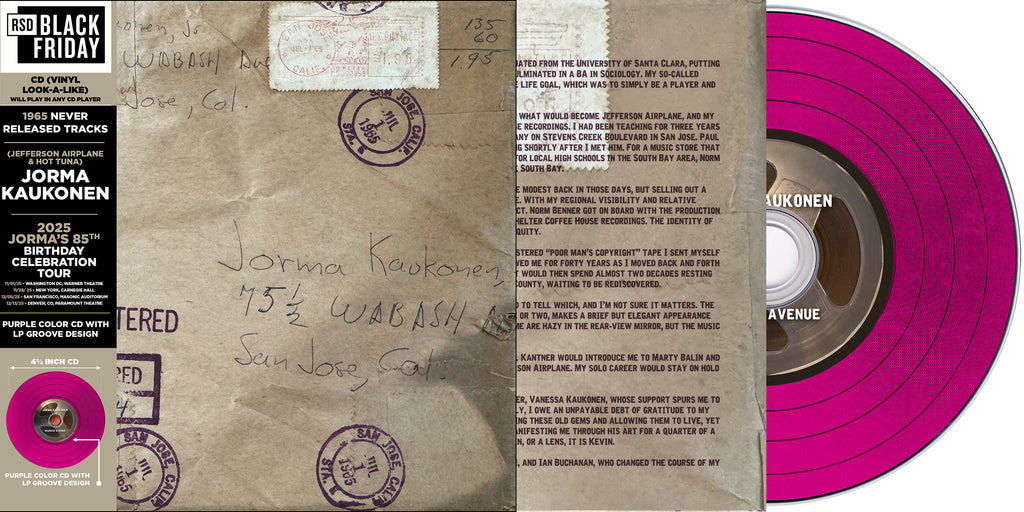 RSD BLACK
FRIDAY
CD (VINYL
LOOK-A-LIKE)
WILL PLAY IN ANY CD PLAYER
1965 NEVER
RELEASED TRACKS
(JEFFERSON AIRPLANE
& HOT TUNA)
JORMA
KAUKONEN
2025
JORMA'S 85TH
BIRTHDAY
CELEBRATION
TOUR
11/01/25 • WASHINGTON DC, WARNER THEATRE
11/29/25 • NEW YORK, CARNEGIE HALL
12/05/25 • SAN FRANCISCO, MASONIC AUDITORIUM
12/13/25 • DENVER, CO, PARAMOUNT THEATRE
PURPLE COLOR CD WITH
LP GROOVE DESIGN
4¾ INCH CD
PURPLE COLOR CD WITH
LP GROOVE DESIGN
konen, Jr
WABASH Ave
Jose, Cal.
SAN JOSE
JUL-1'65
CALIF.
U.S. POSTAGE
135
60
1.95
SAN JOSE, CALIF.
JUL
1
1965
STA.
Jorma Kaukonen,
75 ½ WABASH
San Jose, Cal.
TERED
SAN JOSE, CALIF.
JUL
1
1965
SAN JOSE, CALIF.
JUL
1
1965
STA.
ATED FROM THE UNIVERSITY OF SANTA CLARA, PUTTING
ULMINATED IN A BA IN SOCIOLOGY. MY SO-CALLED
LIFE GOAL, WHICH WAS TO SIMPLY BE A PLAYER AND
WHAT WOULD BECOME JEFFERSON AIRPLANE, AND MY
E RECORDINGS. I HAD BEEN TEACHING FOR THREE YEARS
ANY ON STEVENS CREEK BOULEVARD IN SAN JOSE. PAUL
G SHORTLY AFTER I MET HIM. FOR A MUSIC STORE THAT
FOR LOCAL HIGH SCHOOLS IN THE SOUTH BAY AREA, NORM
SOUTH BAY.
E MODEST BACK IN THOSE DAYS, BUT SELLING OUT A
E. WITH MY REGIONAL VISIBILITY AND RELATIVE
CT. NORM BENNER GOT ON BOARD WITH THE PRODUCTION
HELTER COFFEE HOUSE RECORDINGS. THE IDENTITY OF
QUITY.
STERED "POOR MAN'S COPYRIGHT" TAPE I SENT MYSELF
VED ME FOR FORTY YEARS AS I MOVED BACK AND FORTH
Y WOULD THEN SPEND ALMOST TWO DECADES RESTING
OUNTY, WAITING TO BE REDISCOVERED.
D TO TELL WHICH, AND I'M NOT SURE IT MATTERS. THE
OR TWO, MAKES A BRIEF BUT ELEGANT APPEARANCE
ME ARE HAZY IN THE REAR-VIEW MIRROR, BUT THE MUSIC
. KANTNER WOULD INTRODUCE ME TO MARTY BALIN AND
SON AIRPLANE. MY SOLO CAREER WOULD STAY ON HOLD
ER, VANESSA KAUKONEN, WHOSE SUPPORT SPURS ME TO
LY, I OWE AN UNPAYABLE DEBT OF GRATITUDE TO MY
ING THESE OLD GEMS AND ALLOWING THEM TO LIVE, YET
ANIFESTING ME THROUGH HIS ART FOR A QUARTER OF A
N, OR A LENS, IT IS KEVIN.
, AND IAN BUCHANAN, WHO CHANGED THE COURSE OF MY
AUKONEN
AVENUE